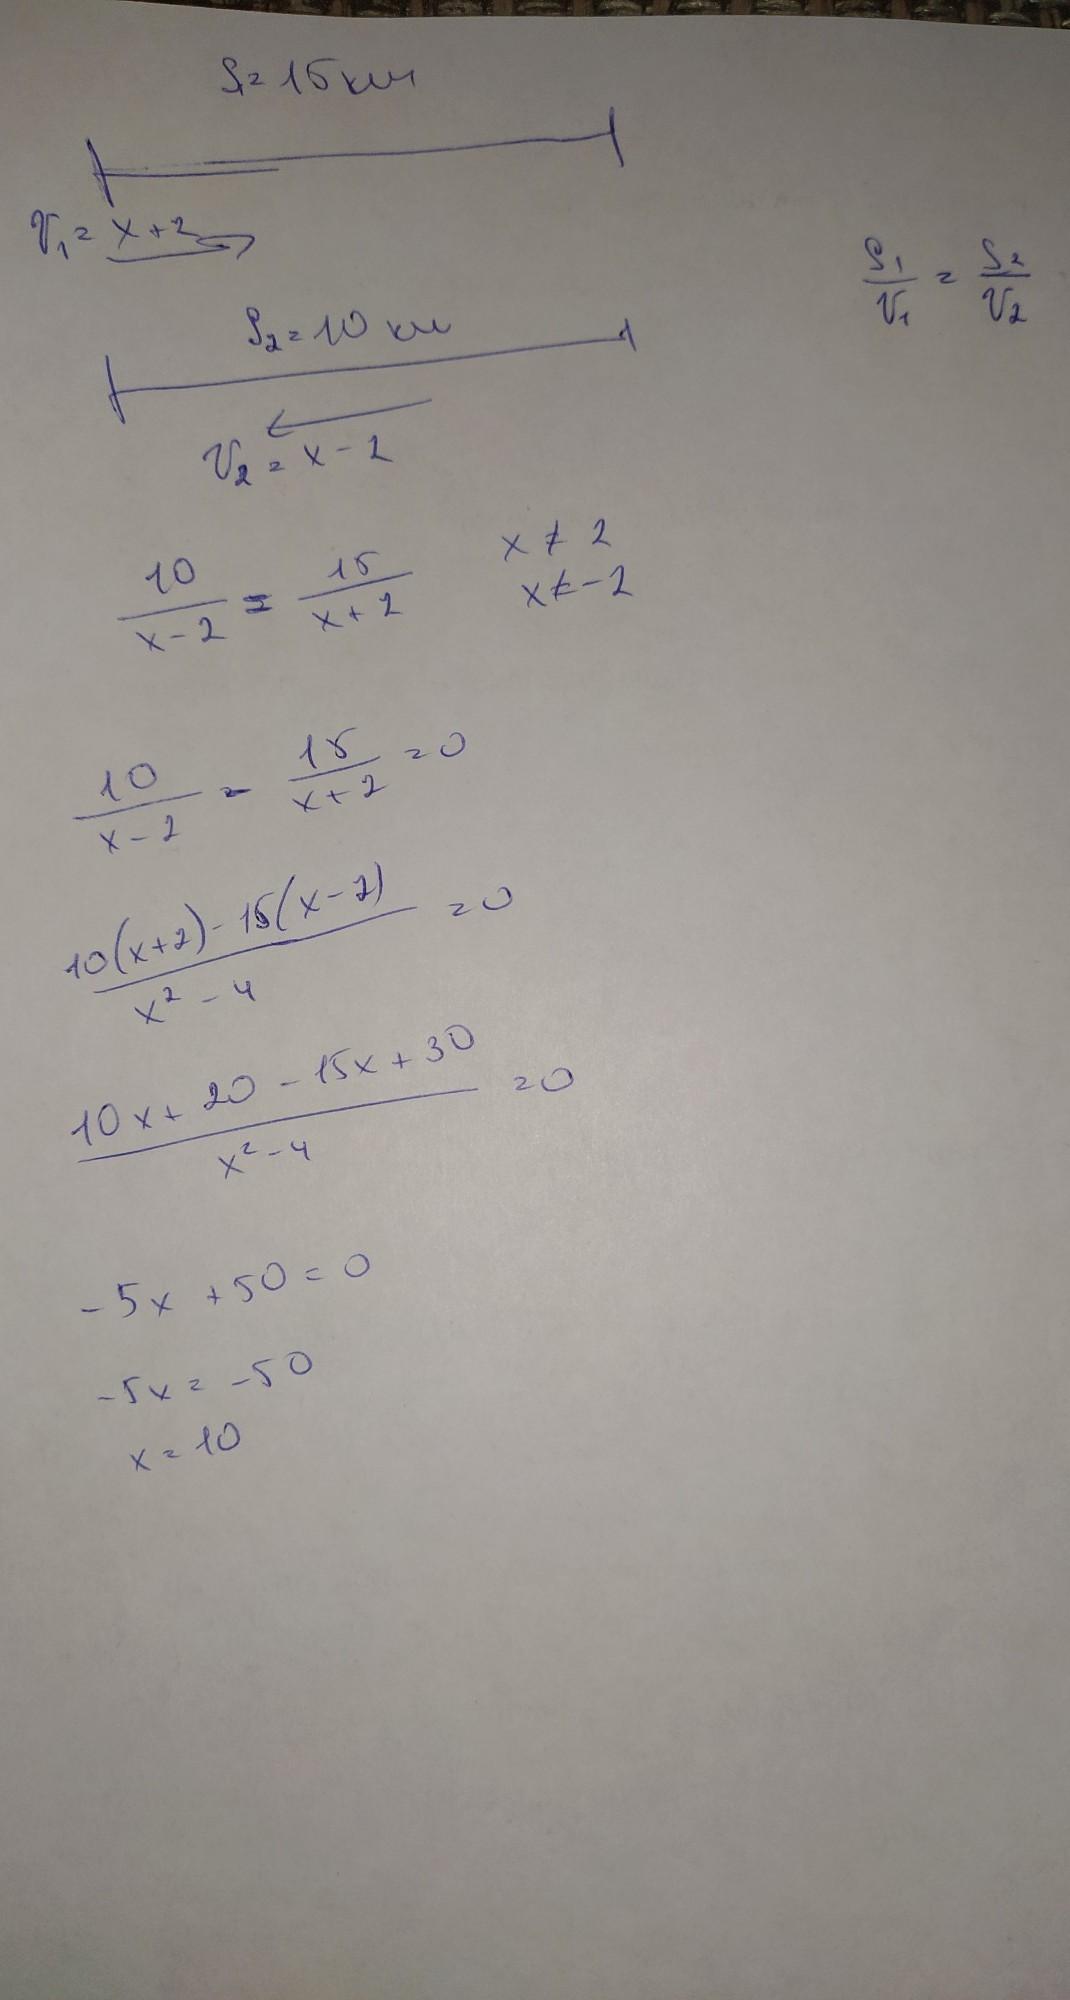 S₁=15км
V₁=x+2
S₁/V₁=S₂/V₂
S₂=10 км
V₂=x-2
10/(x-2)=15/(x+2) x≠2
x≠-2
10/(x-2)-15/(x+2)=0
(10(x+2)-15(x-2))/(x²-4)=0
(10x+20-15x+30)/(x²-4)=0
-5x+50=0
-5x=-50
x=10